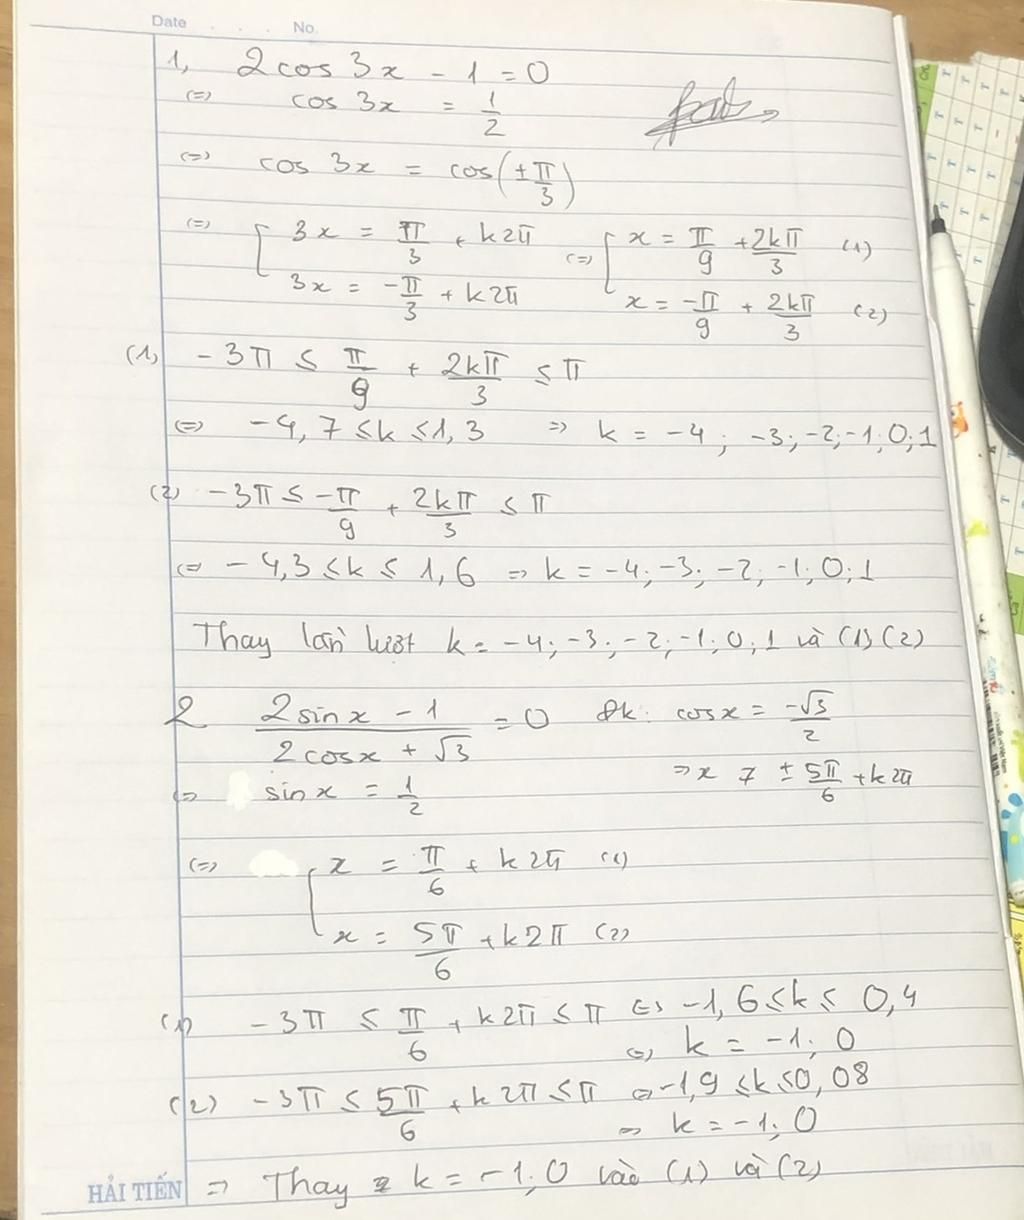 Date . . . No.
1, 2cos 3x - 1 = 0
(=) cos 3x = 1/2
(=) cos 3x = cos(±π/3)
(=) [ 3x = π/3 + k2π (=) [ x = π/9 + 2kπ/3 (1)
3x = -π/3 + k2π x = -π/9 + 2kπ/3 (2)
(1) -3π ≤ π/9 + 2kπ/3 ≤ π
(=) -4,7 ≤ k ≤ 1,3 => k = -4; -3; -2; -1; 0; 1
(2) -3π ≤ -π/9 + 2kπ/3 ≤ π
(=) -4,3 ≤ k ≤ 1,6 => k = -4; -3; -2; -1; 0; 1
Thay lần lượt k = -4; -3; -2; -1; 0; 1 và (1) (2)
2 (2sinx - 1)/(2cosx + √3) = 0 Đk: cosx = -√3/2
=> x ≠ ±5π/6 + k2π
=> sinx = 1/2
(=) [ x = π/6 + k2π (1)
x = 5π/6 + k2π (2)
(1) -3π ≤ π/6 + k2π ≤ π (=) -1,6 ≤ k ≤ 0,4
(=) k = -1; 0
(2) -3π ≤ 5π/6 + k2π ≤ π (=) -1,9 ≤ k ≤ 0,08
=> k = -1; 0
HẢI TIẾN => Thay k = -1; 0 vào (1) và (2)